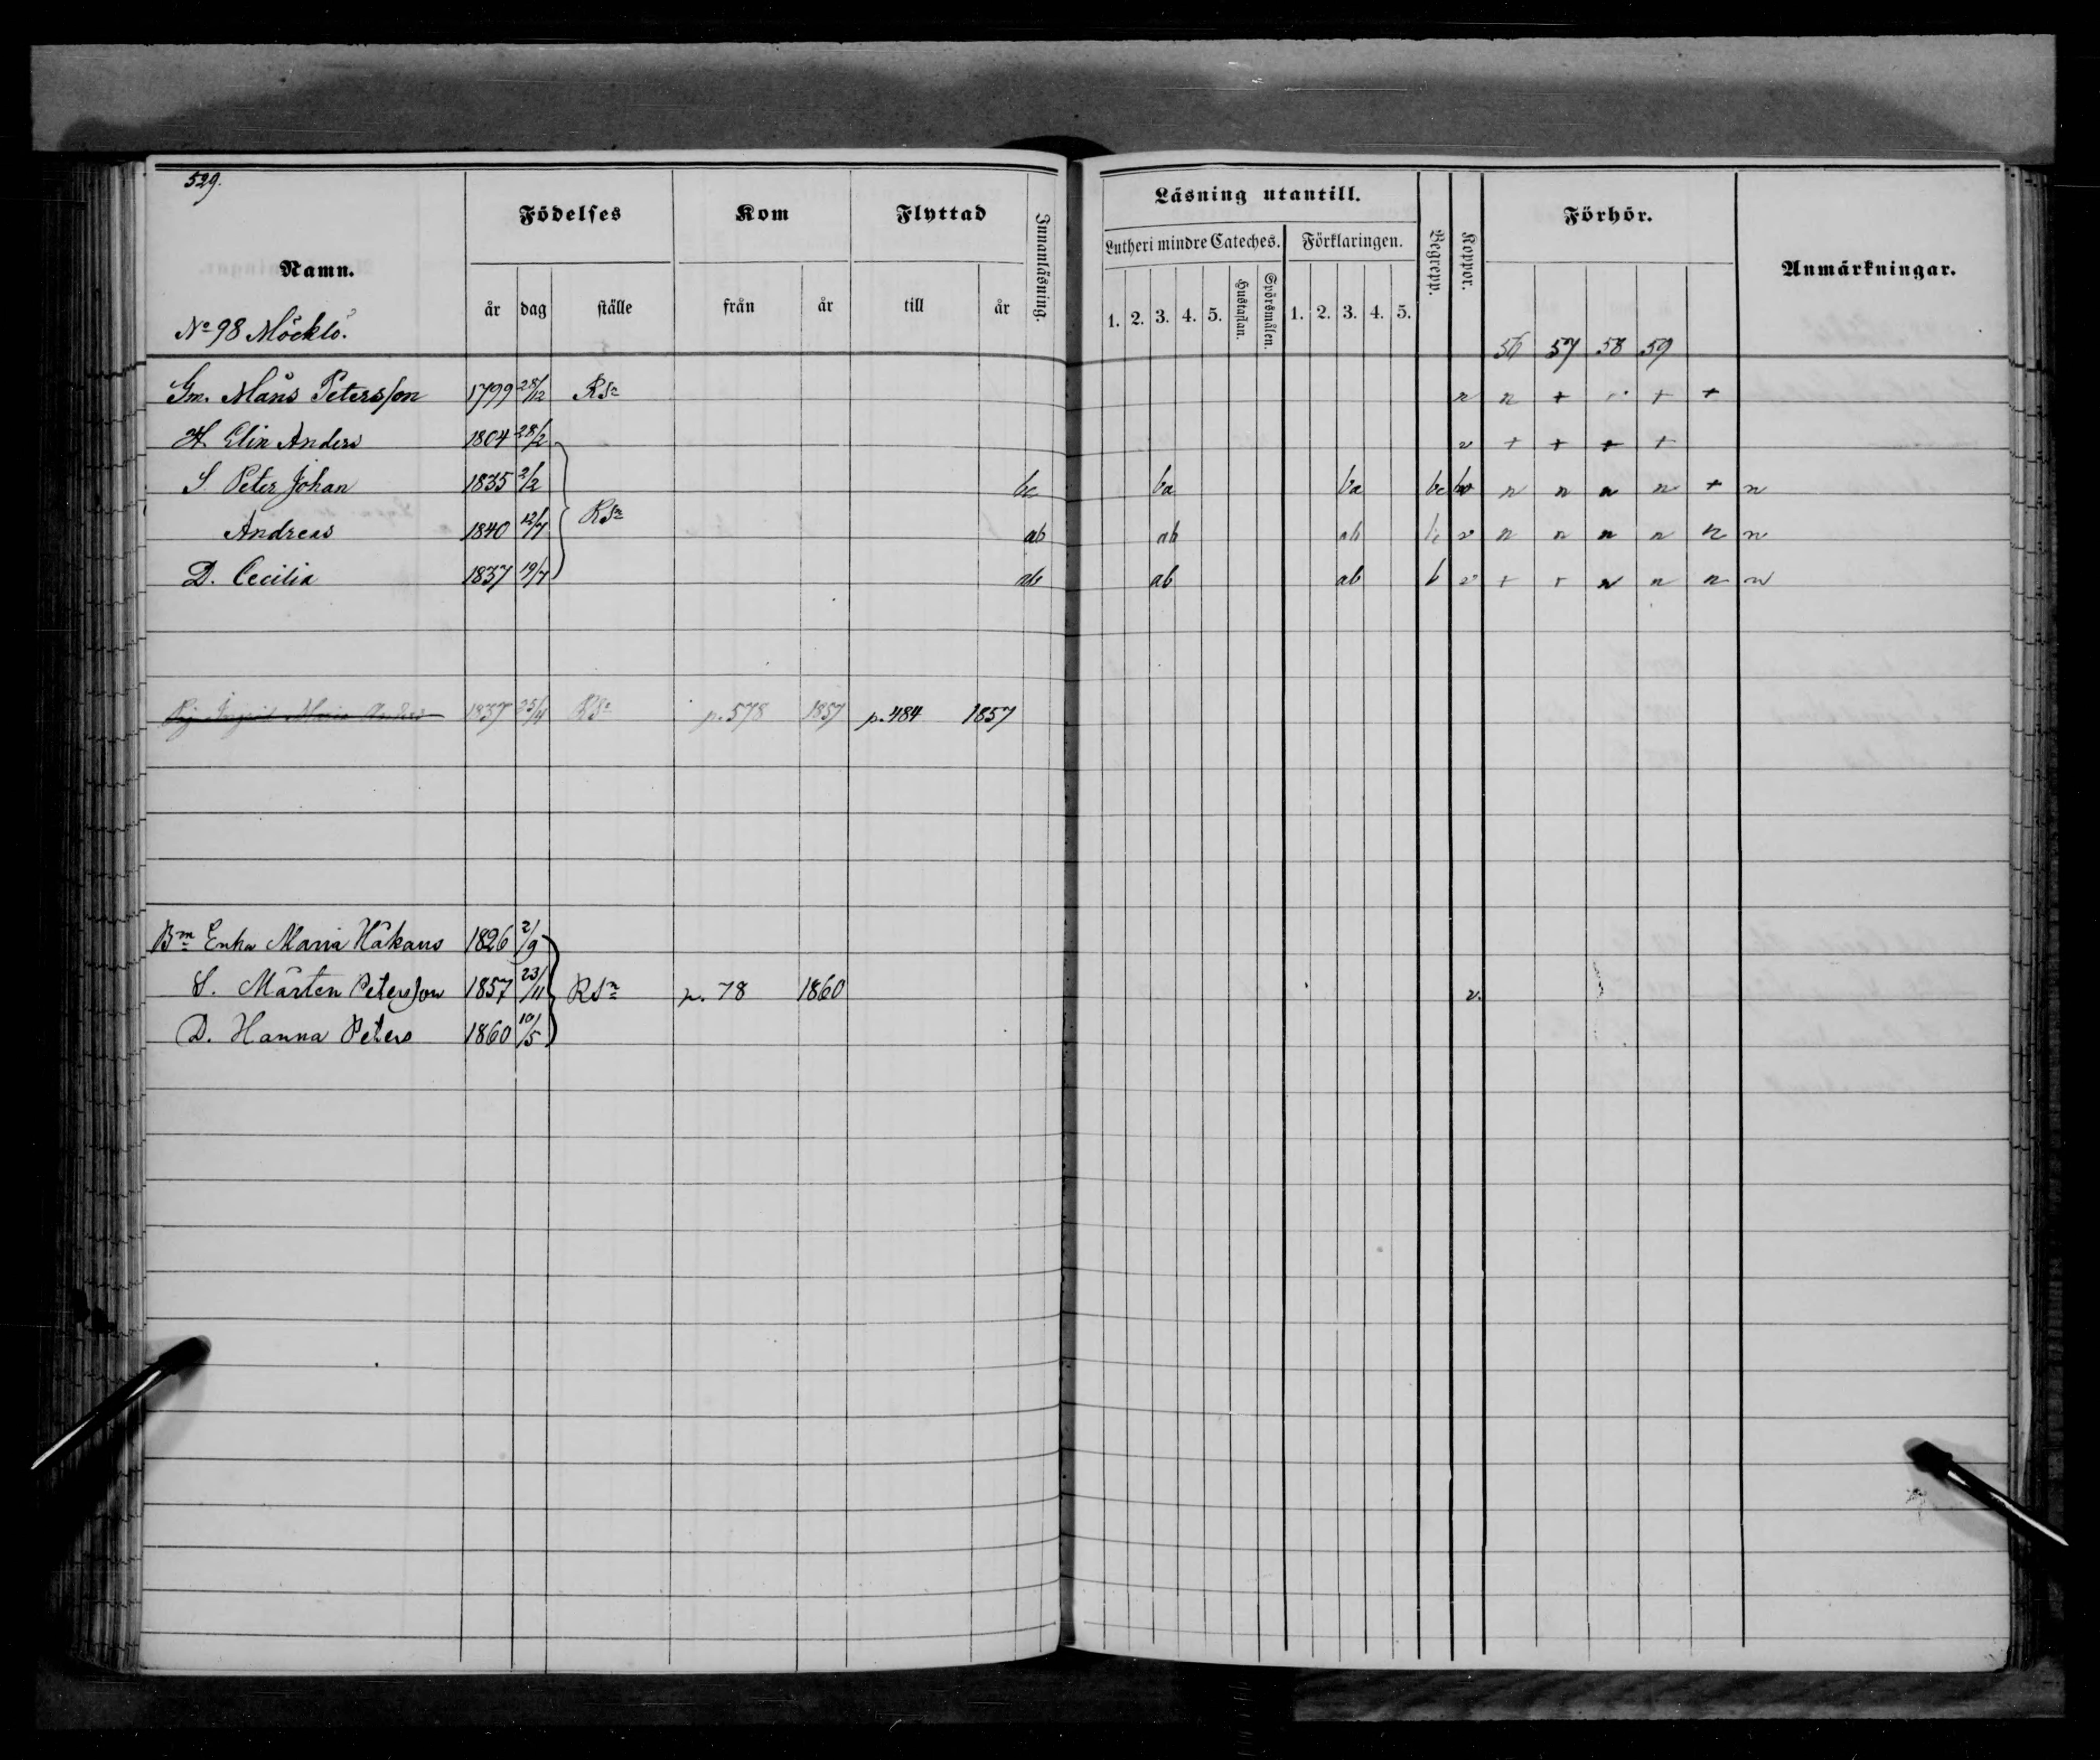 529.
Namn. Födelses Kom Flyttad Innanläsning. Läsning utantill. Begrepp. Koppor. Förhör. Anmärkningar.
Lutheri mindre Cateches. Förklaringen.
år dag ställe från år till år 1. 2. 3. 4. 5. Hustaflan. Spörsmålen. 1. 2. 3. 4. 5.
No 98 Möcklö. 56 57 58 59
Gm. Måns Petersson 1799 28/12 RSn n n + + +
H. Elin Anders 1804 28/2 v + + + +
S. Peter Johan 1835 2/2 bc ba ba bc n n n n + n
Andreas 1840 12/7 RSn ab ab ab v n n n n n n
D. Cecilia 1837 19/7 ab ab ab b v + + n n n n
Pig. Ingrid Maria 1837 25/4 RSn p. 578 1857 p. 484 1857
Bm Enka Maria Håkans 1826 2/9
S. Mårten Petersson 1857 23/11 RSn p. 78 1860 v.
D. Hanna Peters 1860 10/5